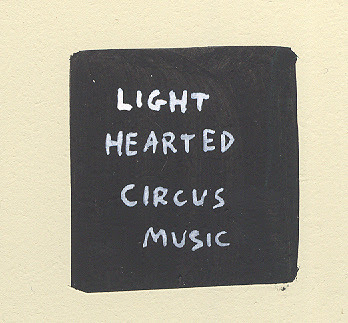 LIGHT
HEARTED
CIRCUS
MUSIC